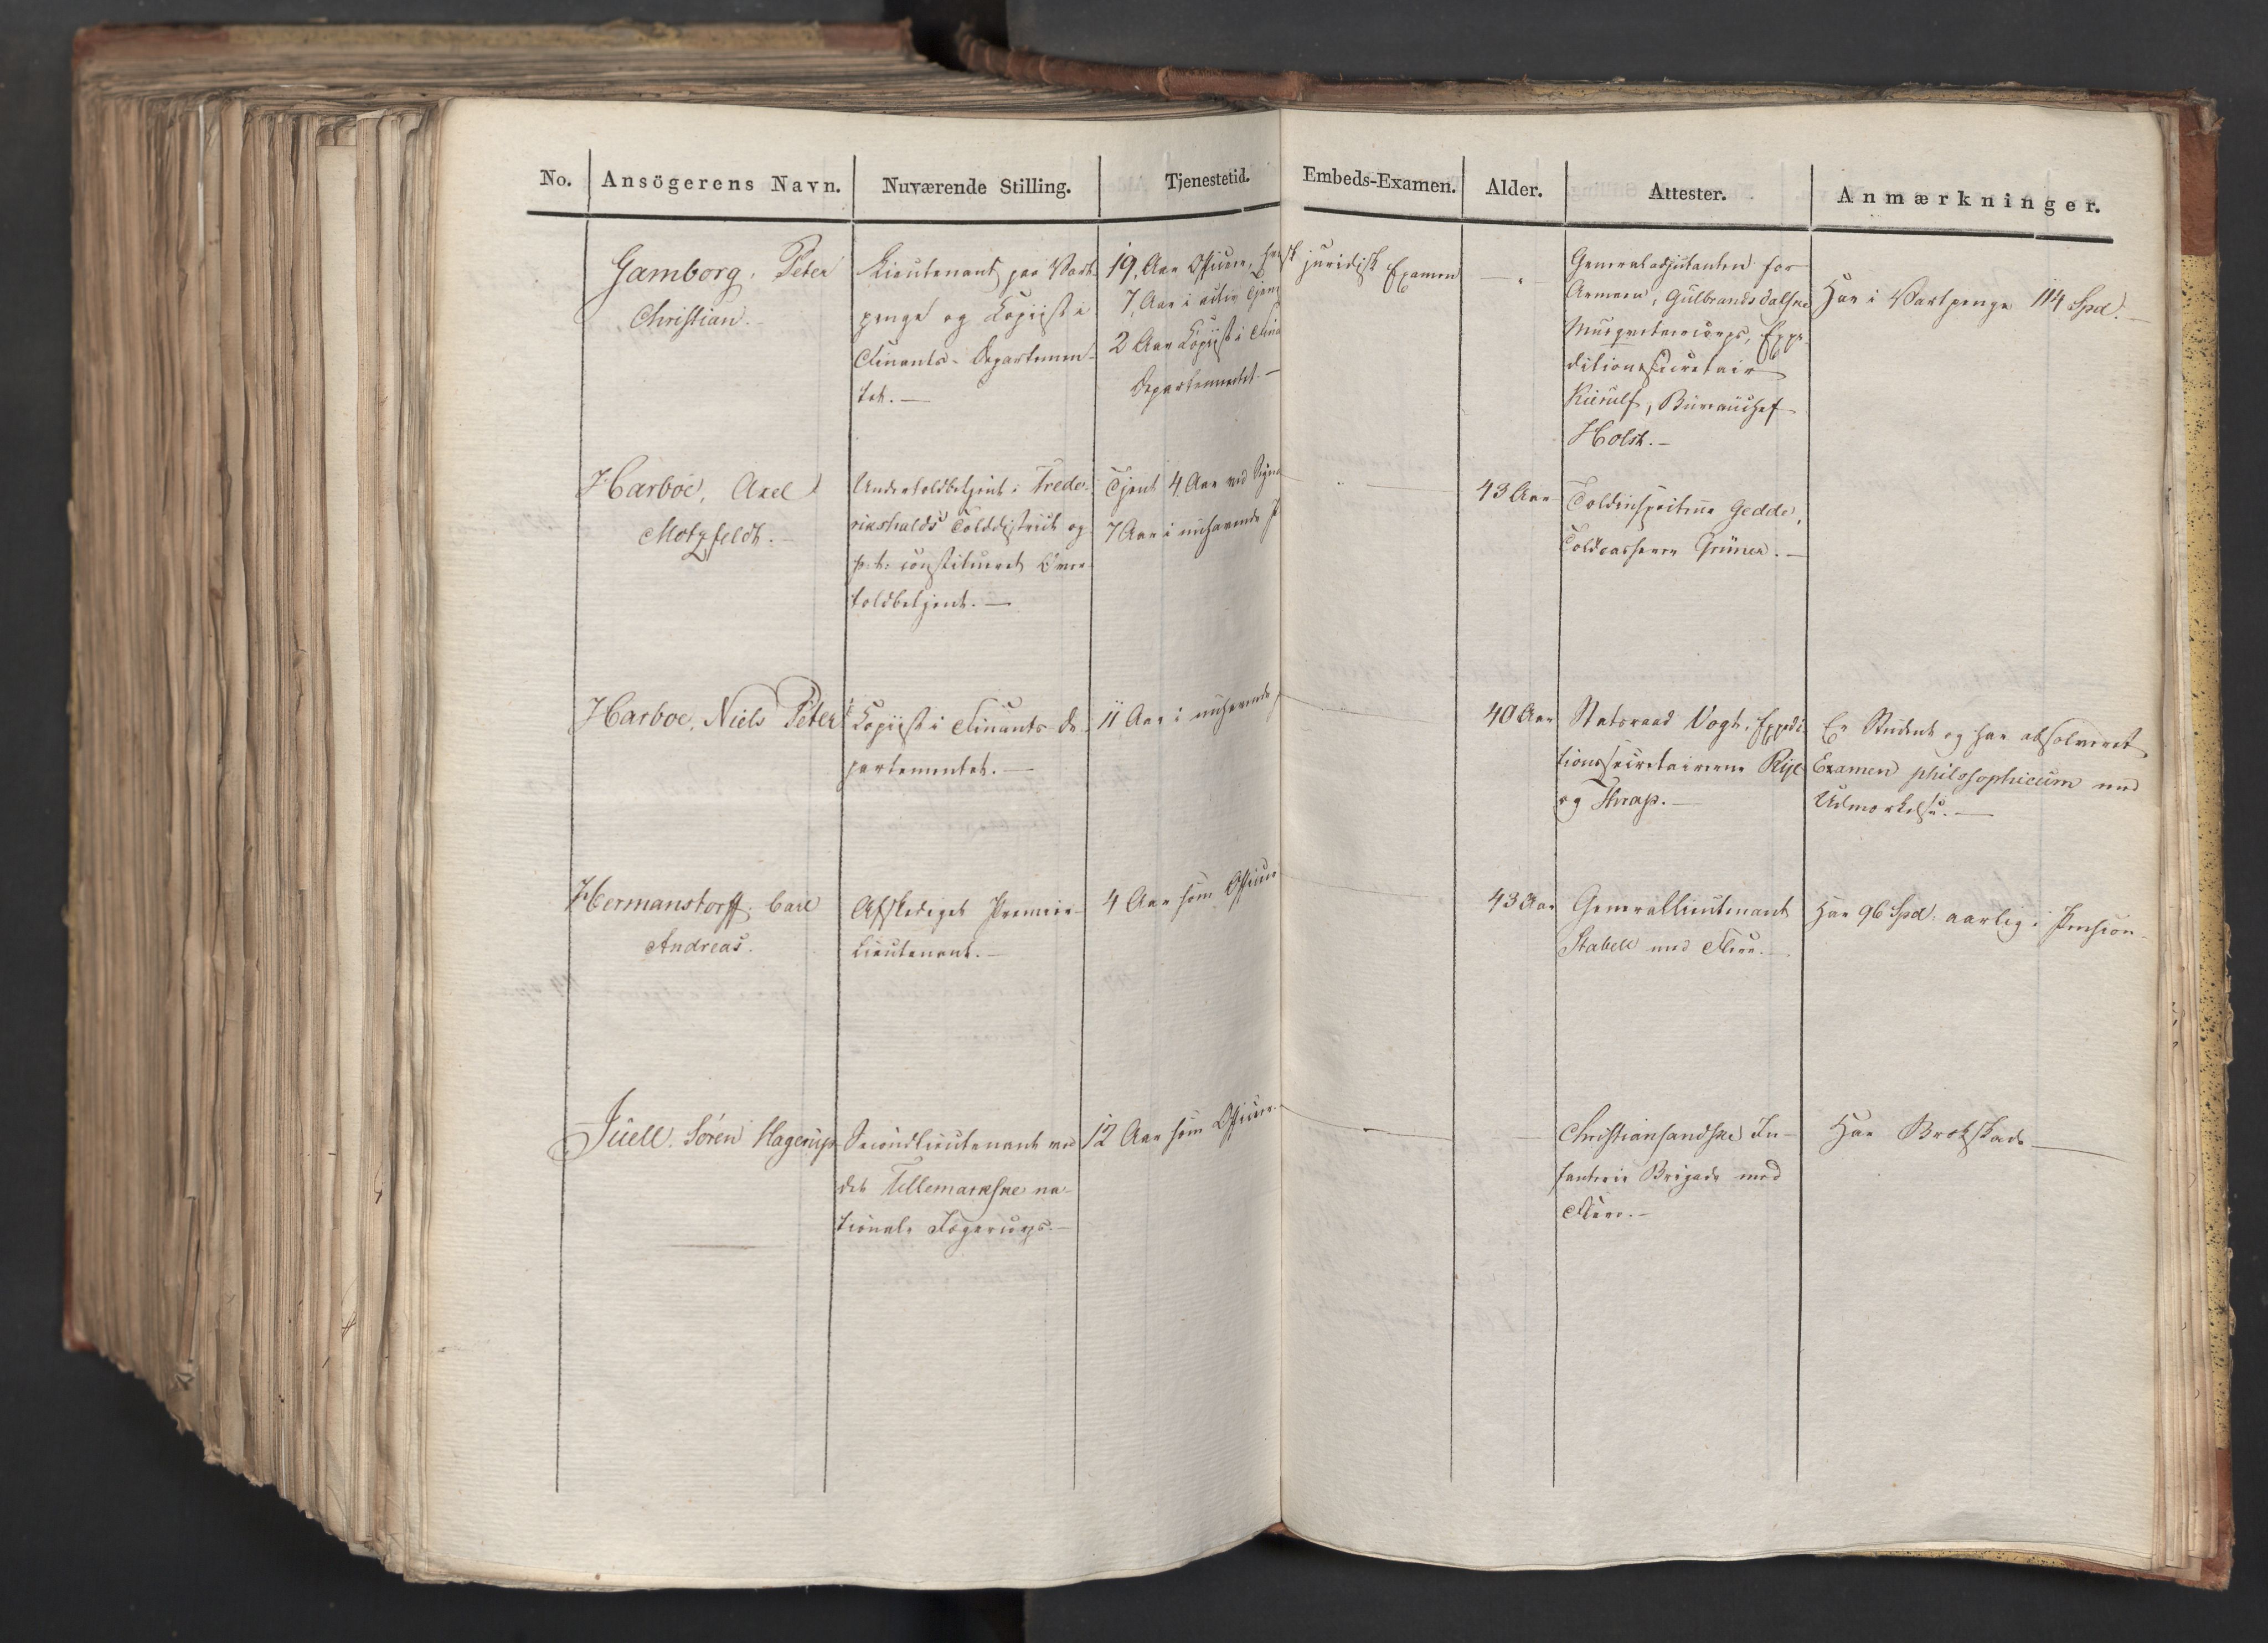 No. Ansögerens Navn. Nuværende Stilling. Tjenestetid. Embeds-Examen. Alder. Attester. Anmærkninger.
Gamborg, Peter
Christian.
Lieutenant paa Vart-
penge og Copiist i
Finants-Departemen-
tet. —
19 Aar Officeer,
7 Aar i activ
2 Aar Copiist i
Departementet. —
juridisk Examen
Generaladjutanten for
Armeen, Gulbrandsdalske
Musqueteercorps, Expe-
ditionssecretair
Kierulf, Bureauchef
Holst. —
Har i Vartpenge 114 Spd. —
Harboe, Axel
Motzfeldt. —
Undertoldbetjent i Frede-
rikshalds Tolddistrict og
p. t. constitueret Over-
toldbetjent. —
Tjent 4 Aar ved
7 Aar i nuhavende
43 Aar
Toldinspecteur Gedde,
Toldcasserer Grüner. —
Harboe, Niels Peter
Copiist i Finants-De-
partementet. —
11 Aar i nuhavende
40 Aar
Statsraad Vogt, Expedi-
tionssecretairerne Rye
og Thrap. —
Er Student og har absolveret
Examen philosophicum med
Udmærkelse. —
Hermanstorff, Carl
Andreas.
Afskediget Premier-
Lieutenant. —
4 Aar som Officeer
43 Aar
Generallieutenant
Stabell med Flere. —
Har 96 Spd. aarlig i Pension —
Juell, Sören Hagerup
Secondlieutenant ved
det Tellemarkske na-
tionale Jægercorps. —
12 Aar som Officeer.
Christiansandske In-
fanterie Brigade med
Flere. —
Har Brokskade —